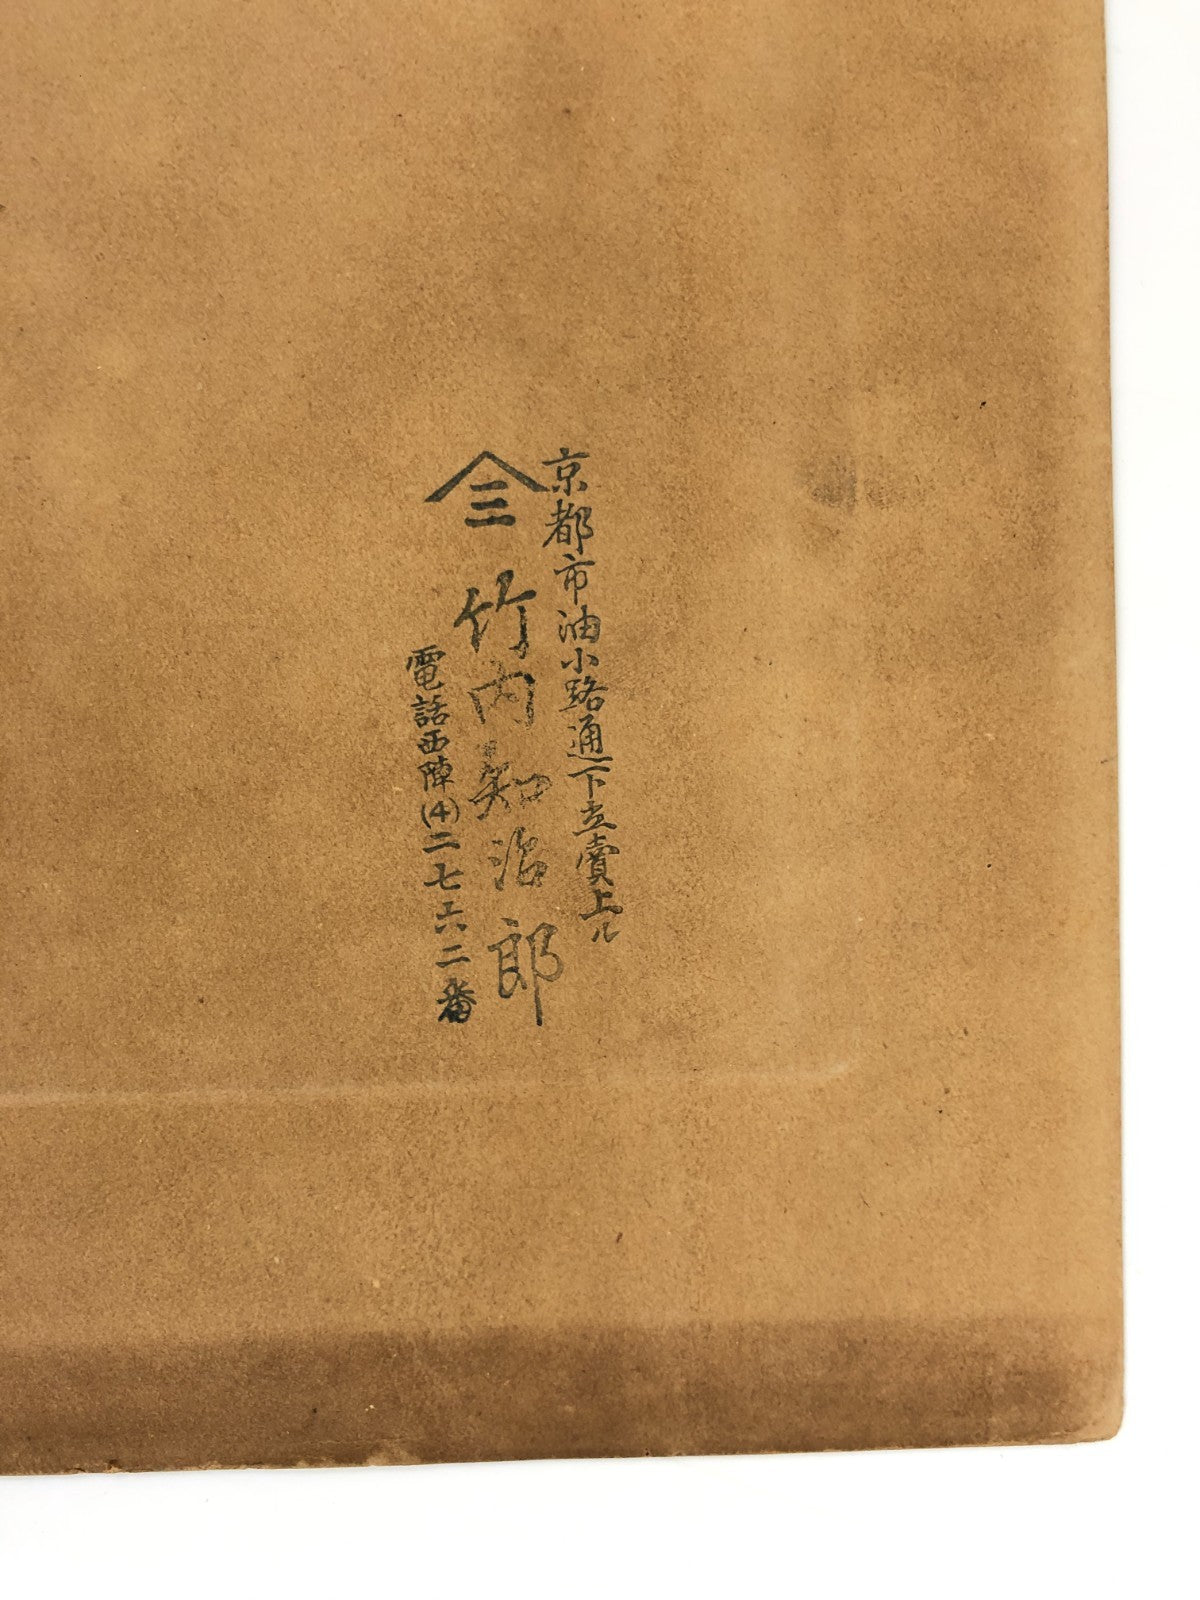 京都市油小路通下立賣上ル
三 竹内知治郎
電話西陣(4)二七六二番